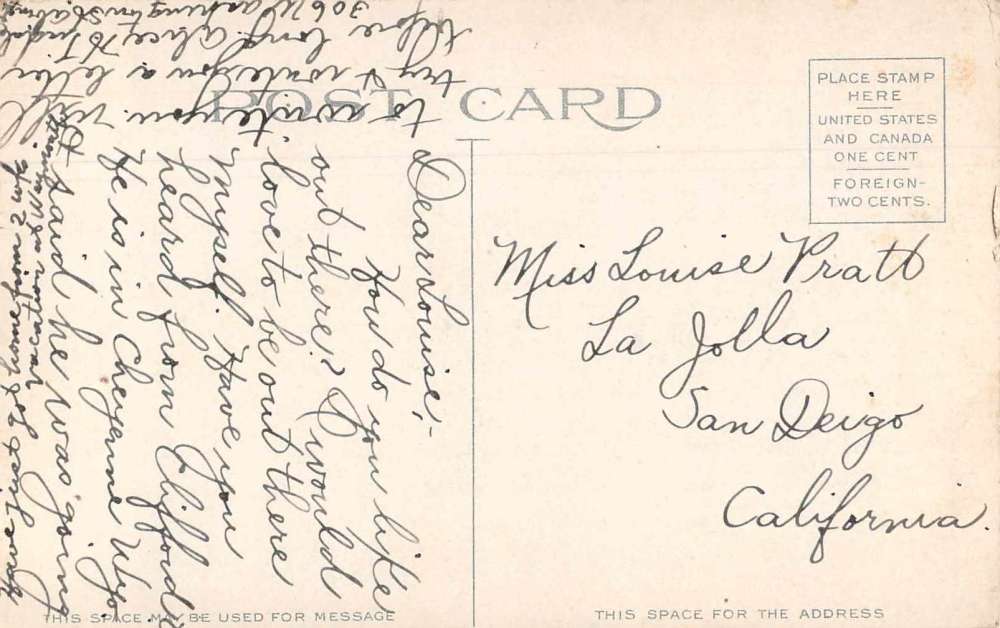 POST CARD
PLACE STAMP
HERE
UNITED STATES
AND CANADA
ONE CENT
FOREIGN-
TWO CENTS.
Dear Louise,-
How do you like
out there? I would
love to be out there
myself. Have you
heard from Clifford?
He is in Cheyenne Wyo
& said he was going
to write you. will
try & write you a letter
before long.
306 Washington St
Miss Louise Pratt
La Jolla
San Deigo
California.
THIS SPACE MAY BE USED FOR MESSAGE
THIS SPACE FOR THE ADDRESS